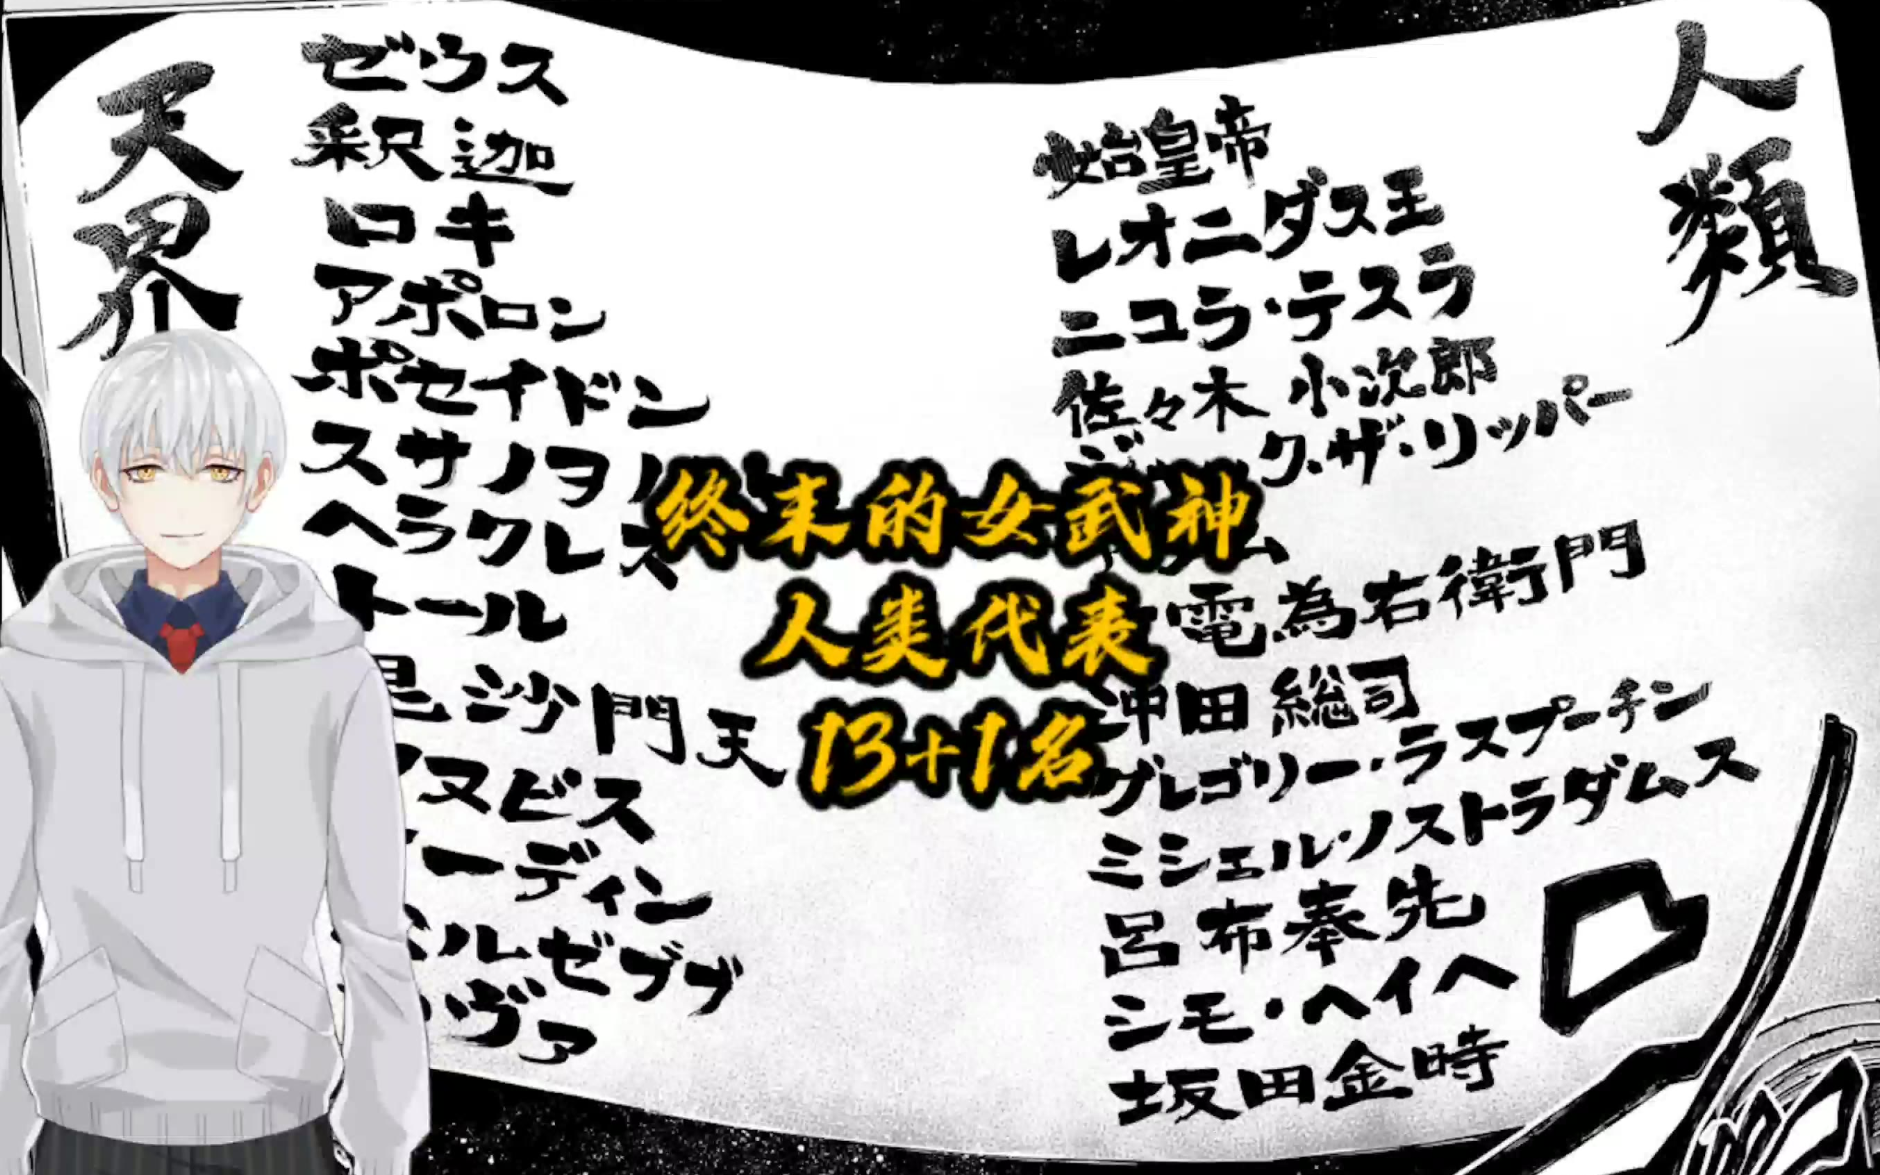 天界
ゼウス
釈迦
ロキ
アポロン
ポセイドン
スサノヲノ
ヘラクレス
トール
沙門天
ヌビス
ーディン
ルゼブブ
ヴァ
人類
始皇帝
レオニダス王
ニコラ・テスラ
佐々木小次郎
ク・ザ・リッパー
ム
電為右衛門
沖田総司
グレゴリー・ラスプーチン
ミシェル・ノストラダムス
呂布奉先
シモ・ヘイヘ
坂田金時
终末的女武神
人类代表
13+1名